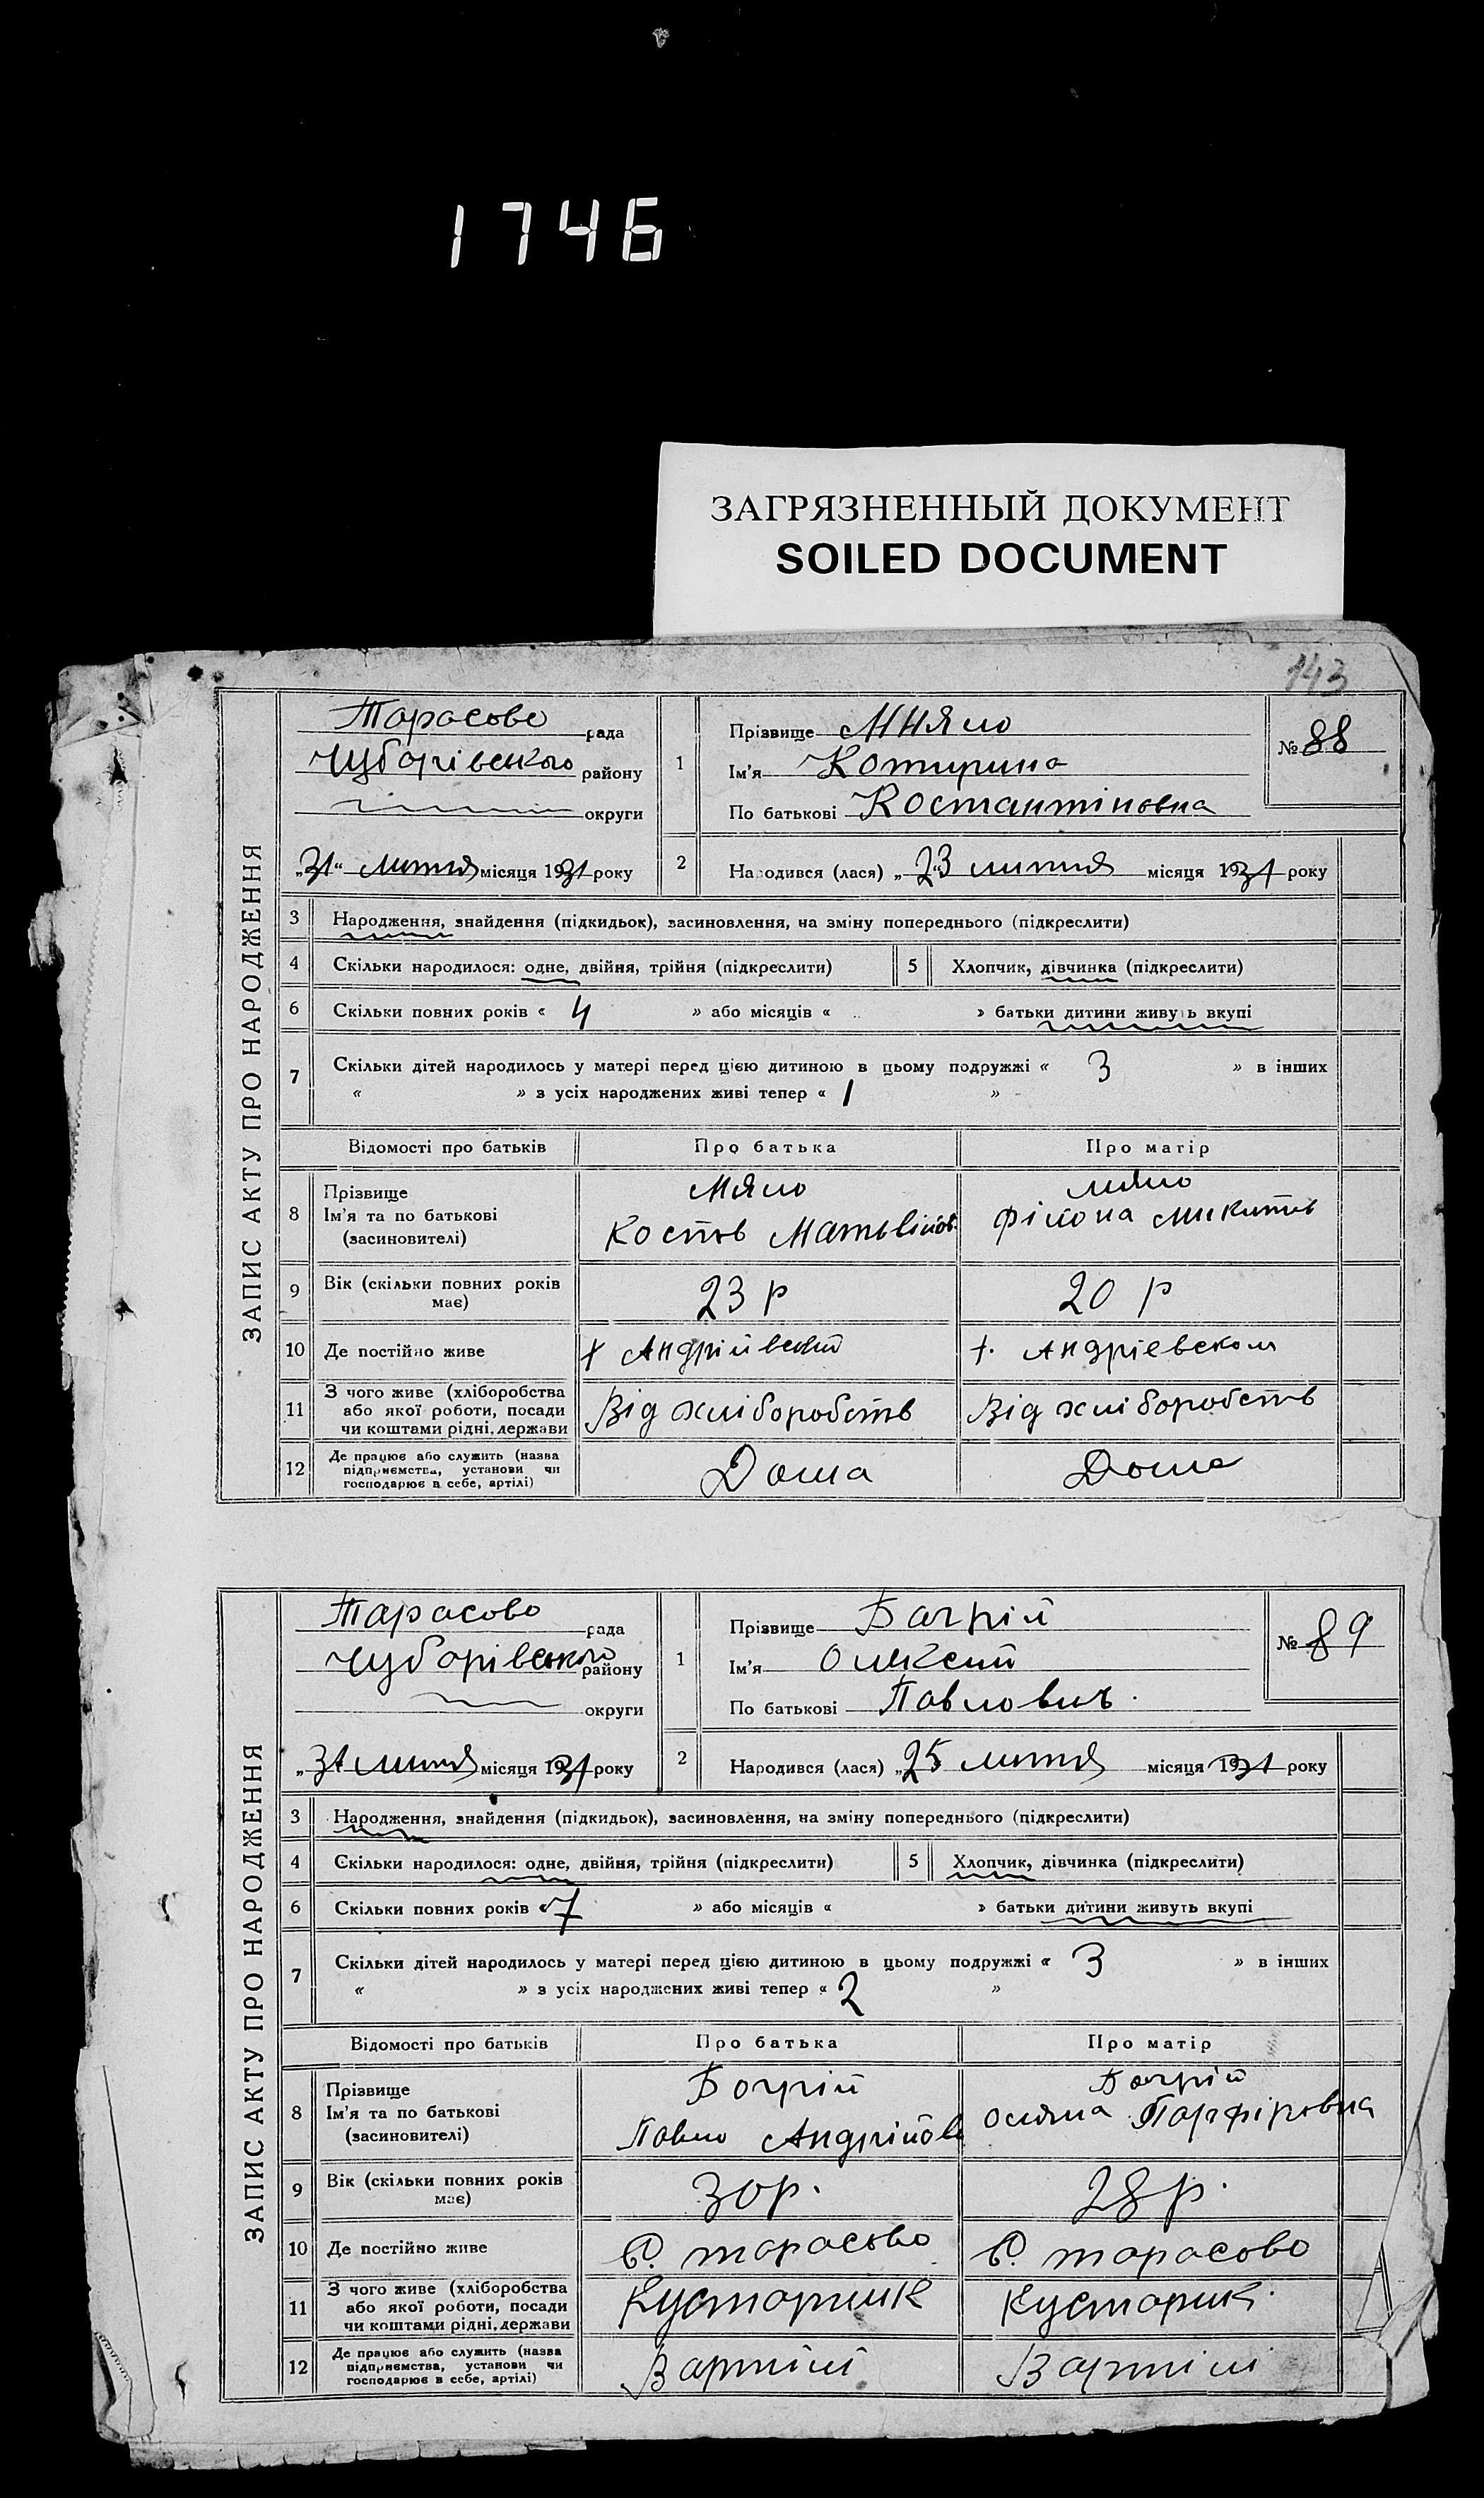 1746
ЗАГРЯЗНЕННЫЙ ДОКУМЕНТ
SOILED DOCUMENT
143
ЗАПИС АКТУ ПРО НАРОДЖЕННЯ
Тарасово рада
Чубарівського району
округи
„31“ лютня місяця 1931 року
1
Прізвище Мняло
Ім'я Катирина
По батькові Костантіновна
№ 88
2
Народився (лася) „23 лютня місяця 1931 року
3 Народження, знайдення (підкидьок), засиновлення, на зміну попереднього (підкреслити)
4 Скільки народилося: одне, двійня, трійня (підкреслити)
5 Хлопчик, дівчинка (підкреслити)
6 Скільки повних років « 4 » або місяців « » батьки дитини живуть вкупі
7 Скільки дітей народилось у матері перед цією дитиною в цьому подружжі « 3 » в інших
« » з усіх народжених живі тепер « 1 »
Відомості про батьків Про батька Про матір
8 Прізвище
Ім'я та по батькові
(засиновителі)
Мяло
Кость Матвійов.
Мяло
Микитів
9 Вік (скільки повних років
має)
23 р
20 р
10 Де постійно живе
х Андріївский
х. Андріевском
11 З чого живе (хліборобства
або якої роботи, посади
чи коштами рідні, держави
Від хліборобств
Від хліборобств
12 Де працює або служить (назва
підприємства, установи чи
господарює в себе, артілі)
Дома
Дома
ЗАПИС АКТУ ПРО НАРОДЖЕННЯ
Тарасово рада
Чубарівського району
округи
„31 лютня місяця 1931 року
1
Прізвище Багрій
Ім'я Олксій
По батькові Павлович.
№ 89
2
Народився (лася) „25 лютня місяця 1931 року
3 Народження, знайдення (підкидьок), засиновлення, на зміну попереднього (підкреслити)
4 Скільки народилося: одне, двійня, трійня (підкреслити)
5 Хлопчик, дівчинка (підкреслити)
6 Скільки повних років « 7 » або місяців « » батьки дитини живуть вкупі
7 Скільки дітей народилось у матері перед цією дитиною в цьому подружжі « 3 » в інших
« » з усіх народжених живі тепер « 2 »
Відомості про батьків Про батька Про матір
8 Прізвище
Ім'я та по батькові
(засиновителі)
Багрій
Павло Андрійов
Багрій
Парфіровна
9 Вік (скільки повних років
має)
30р.
28р.
10 Де постійно живе
С. Тарасово
С. Тарасово
11 З чого живе (хліборобства
або якої роботи, посади
чи коштами рідні, держави
Кустарник
Кустарник.
12 Де працює або служить (назва
підприємства, установи чи
господарює в себе, артілі)
Вартілі
Вартілі